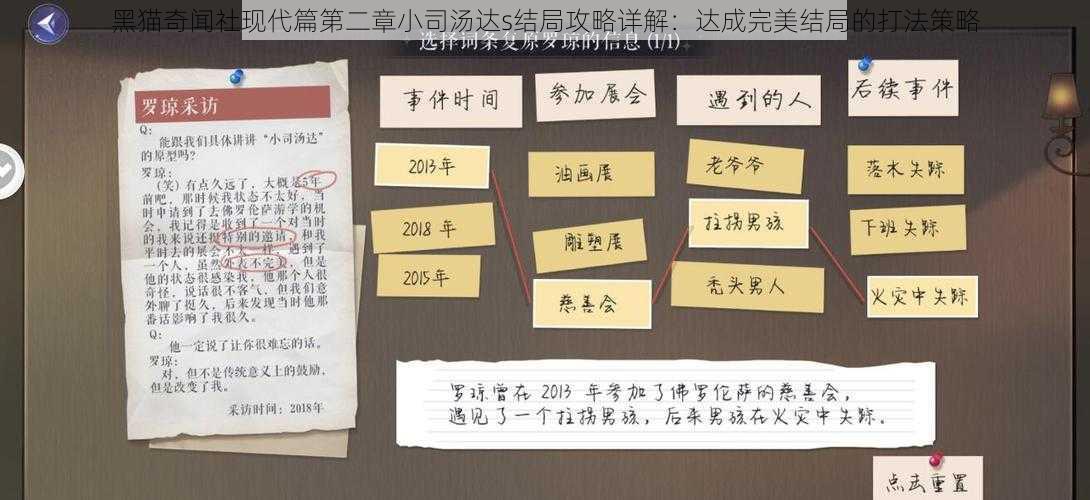 黑猫奇闻社现代篇第二章小司汤达s结局攻略详解：达成完美结局的打法策略
选择词条复原罗琼的信息 (1/1)
罗琼采访
Q:
能跟我们具体讲讲“小司汤达”
的原型吗?
罗琼:
(笑) 有点久远了，大概是5年
前吧，那时候我状态不太好，当
时申请到了去佛罗伦萨游学的机
会，我记得是收到了一个对当时
的我来说还挺特别的邀请，和我
平时去的展会不太一样，遇到了
一个人，虽然外表不完美，但是
他的状态很感染我，他那个人很
奇怪，说话很不客气，但我们意
外聊了挺久，后来发现当时他那
番话影响了我很久。
Q:
他一定说了让你很难忘的话。
罗琼:
对，但不是传统意义上的鼓励，
但是改变了我。
采访时间: 2018年
事件时间
参加展会
遇到的人
后续事件
2013年
油画展
老爷爷
落水失踪
2018 年
雕塑展
拄拐男孩
下班失踪
2015年
慈善会
秃头男人
火灾中失踪
罗琼曾在 2013 年参加了佛罗伦萨的慈善会，
遇见了一个拄拐男孩，后来男孩在火灾中失踪。
点击重置